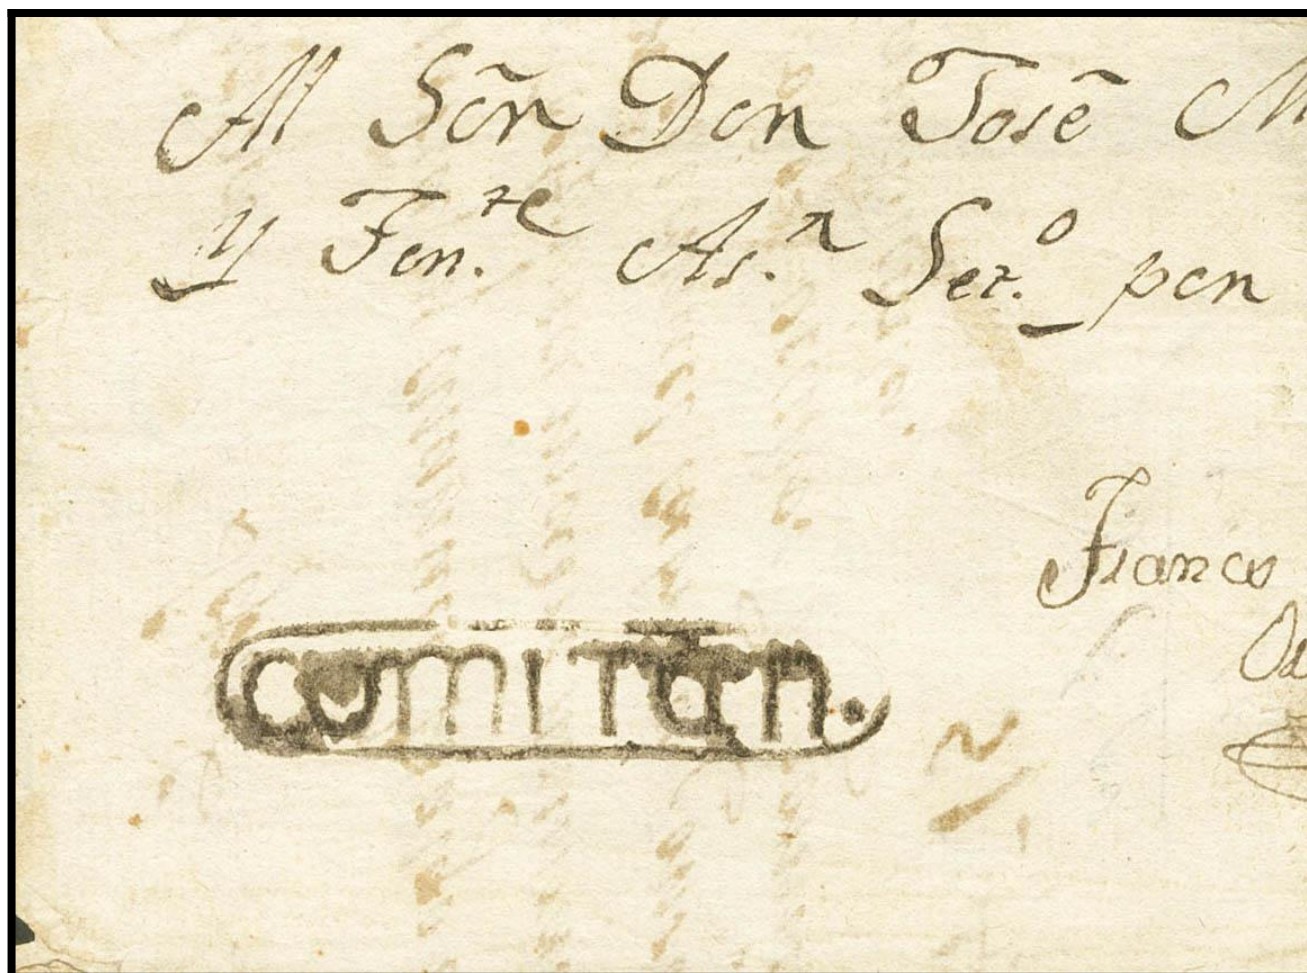 Al Sõr Don Josẽ M
y Ten.te As.r Ser.o pon
Franco
comitan.